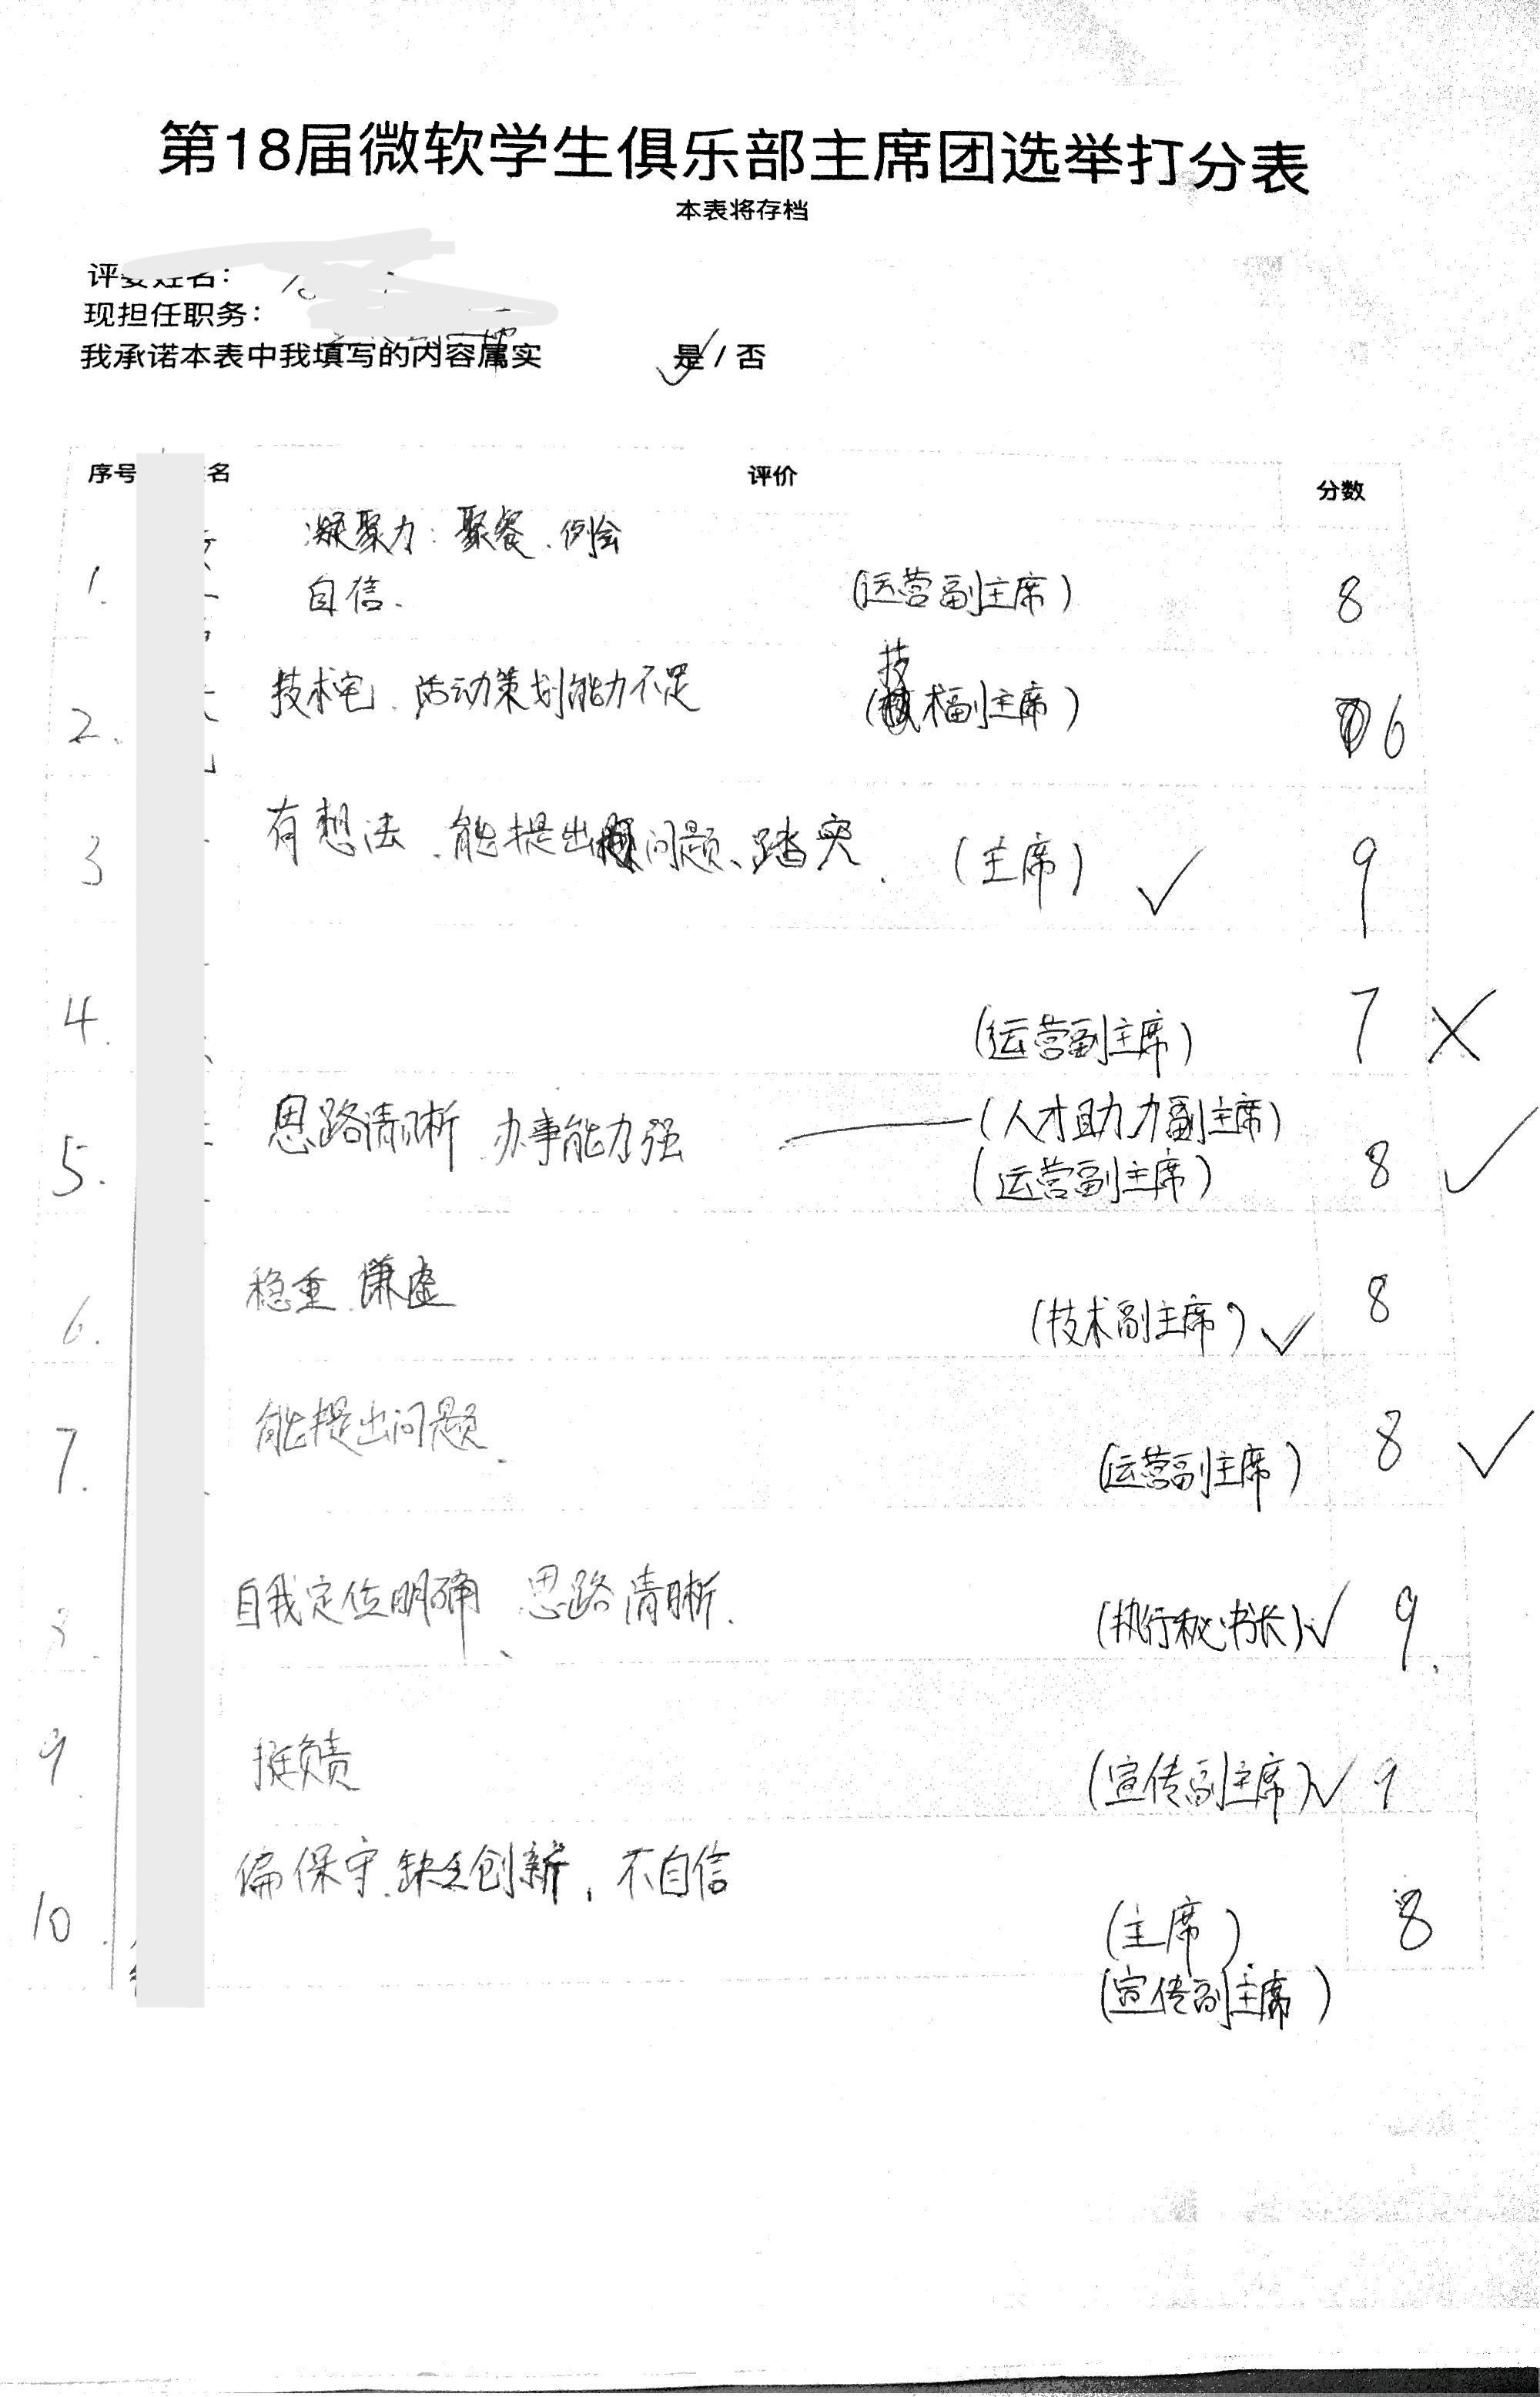 第18届微软学生俱乐部主席团选举打分表
本表将存档
评委姓名:
现担任职务:
我承诺本表中我填写的内容属实 是 / 否
序号 名 评价 分数
凝聚力：聚餐、例会
1. 自信. (运营副主席) 8
技
2. 技术宅、活动策划能力不足 (术副主席) 6
3 有想法、能提出问题、踏实. (主席) ✓ 9
4. (运营副主席) 7 ×
思路清晰 办事能力强 (人才助力副主席)
5. (运营副主席) 8 ✓
6. 稳重、谦虚 (技术副主席) ✓ 8
7. 能提出问题、 (运营副主席) 8 ✓
8. 自我定位明确、思路清晰. (执行秘书长) ✓ 9.
9. 挺负责 (宣传副主席) ✓ 9
偏保守、缺乏创新，不自信
10. (主席) 8
(宣传副主席)